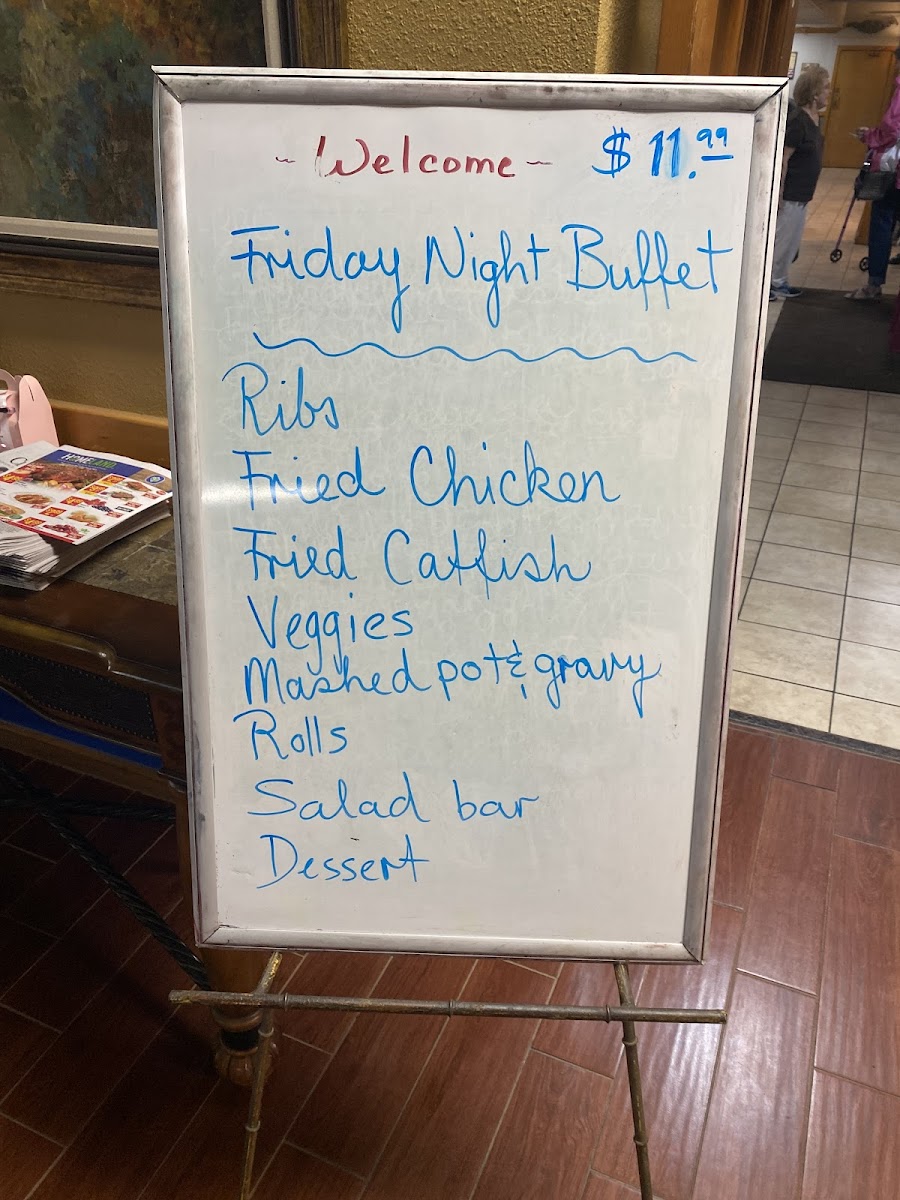 ~ Welcome ~ $ 11.99
Friday Night Buffet
Ribs
Fried Chicken
Fried Catfish
Veggies
Mashed pot & gravy
Rolls
Salad bar
Dessert
HOMELAND